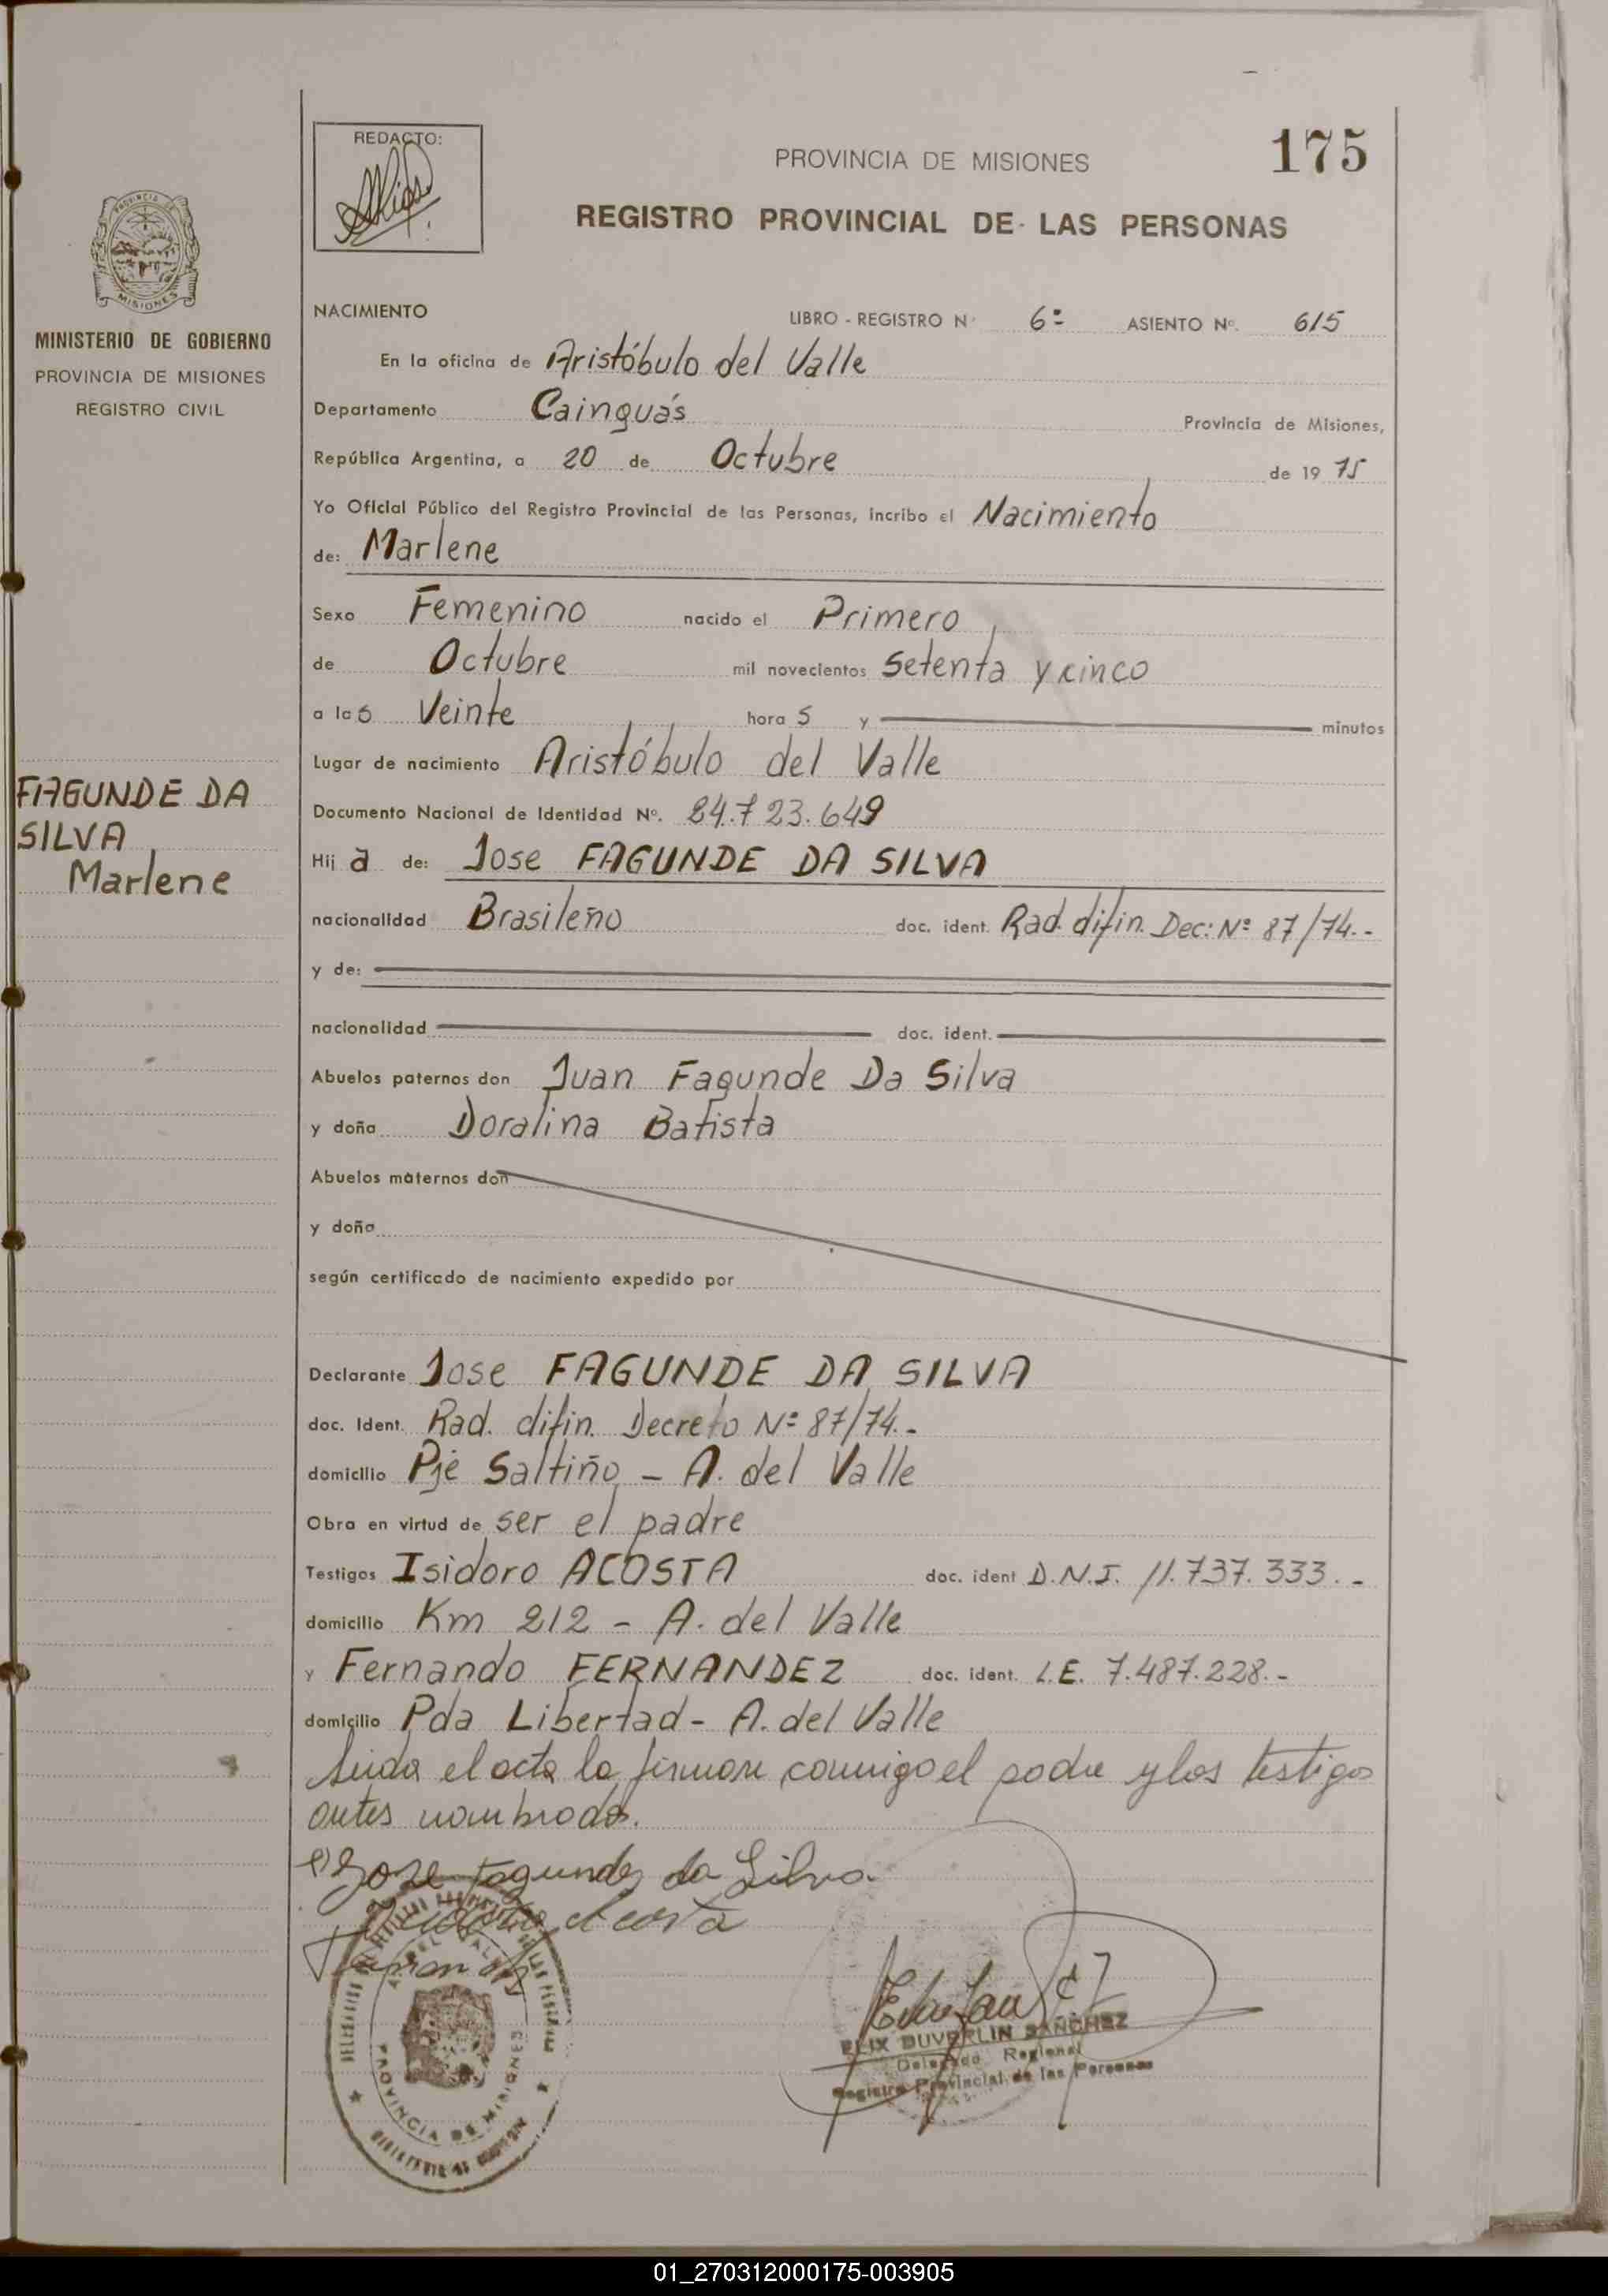 REDACTO:
PROVINCIA DE MISIONES
175
REGISTRO PROVINCIAL DE LAS PERSONAS
PROVINCIA DE
MISIONES
MINISTERIO DE GOBIERNO
PROVINCIA DE MISIONES
REGISTRO CIVIL
FAGUNDE DA
SILVA
Marlene
NACIMIENTO LIBRO - REGISTRO Nº 6º ASIENTO Nº. 615
En la oficina de Aristóbulo del Valle
Departamento Cainguás Provincia de Misiones,
República Argentina, a 20 de Octubre de 19 75
Yo Oficial Público del Registro Provincial de las Personas, incribo el Nacimiento
de: Marlene
Sexo Femenino nacido el Primero
de Octubre mil novecientos Setenta y cinco
a las Veinte hora s y minutos
Lugar de nacimiento Aristóbulo del Valle
Documento Nacional de Identidad Nº. 24.723.649
Hij a de: Jose FAGUNDE DA SILVA
nacionalidad Brasileño doc. ident. Rad. difin. Dec: Nº 87/74.-
y de:
nacionalidad doc. ident.
Abuelos paternos don Juan Fagunde Da Silva
y doña Doralina Batista
Abuelos maternos don
y doña
según certificado de nacimiento expedido por
Declarante Jose FAGUNDE DA SILVA
doc. Ident. Rad. difin. Decreto Nº 87/74.-
domicilio Pje Saltiño - A. del Valle
Obra en virtud de ser el padre
Testigos Isidoro ACOSTA doc. ident D.N.I. 11.737.333.-
domicilio Km 212 - A. del Valle
y Fernando FERNANDEZ doc. ident. L.E. 7.487.228.-
domicilio Pda Libertad - A. del Valle
Leida el acta la firman conmigo el padre y los testigos
antes nombrados.
Jose Fagundes da Silva
Acosta
PROVINCIA DE MISIONES
ELIX DUVERLIN SANCHEZ
Delegado Regional
Registro Provincial de las Personas
01_270312000175-003905